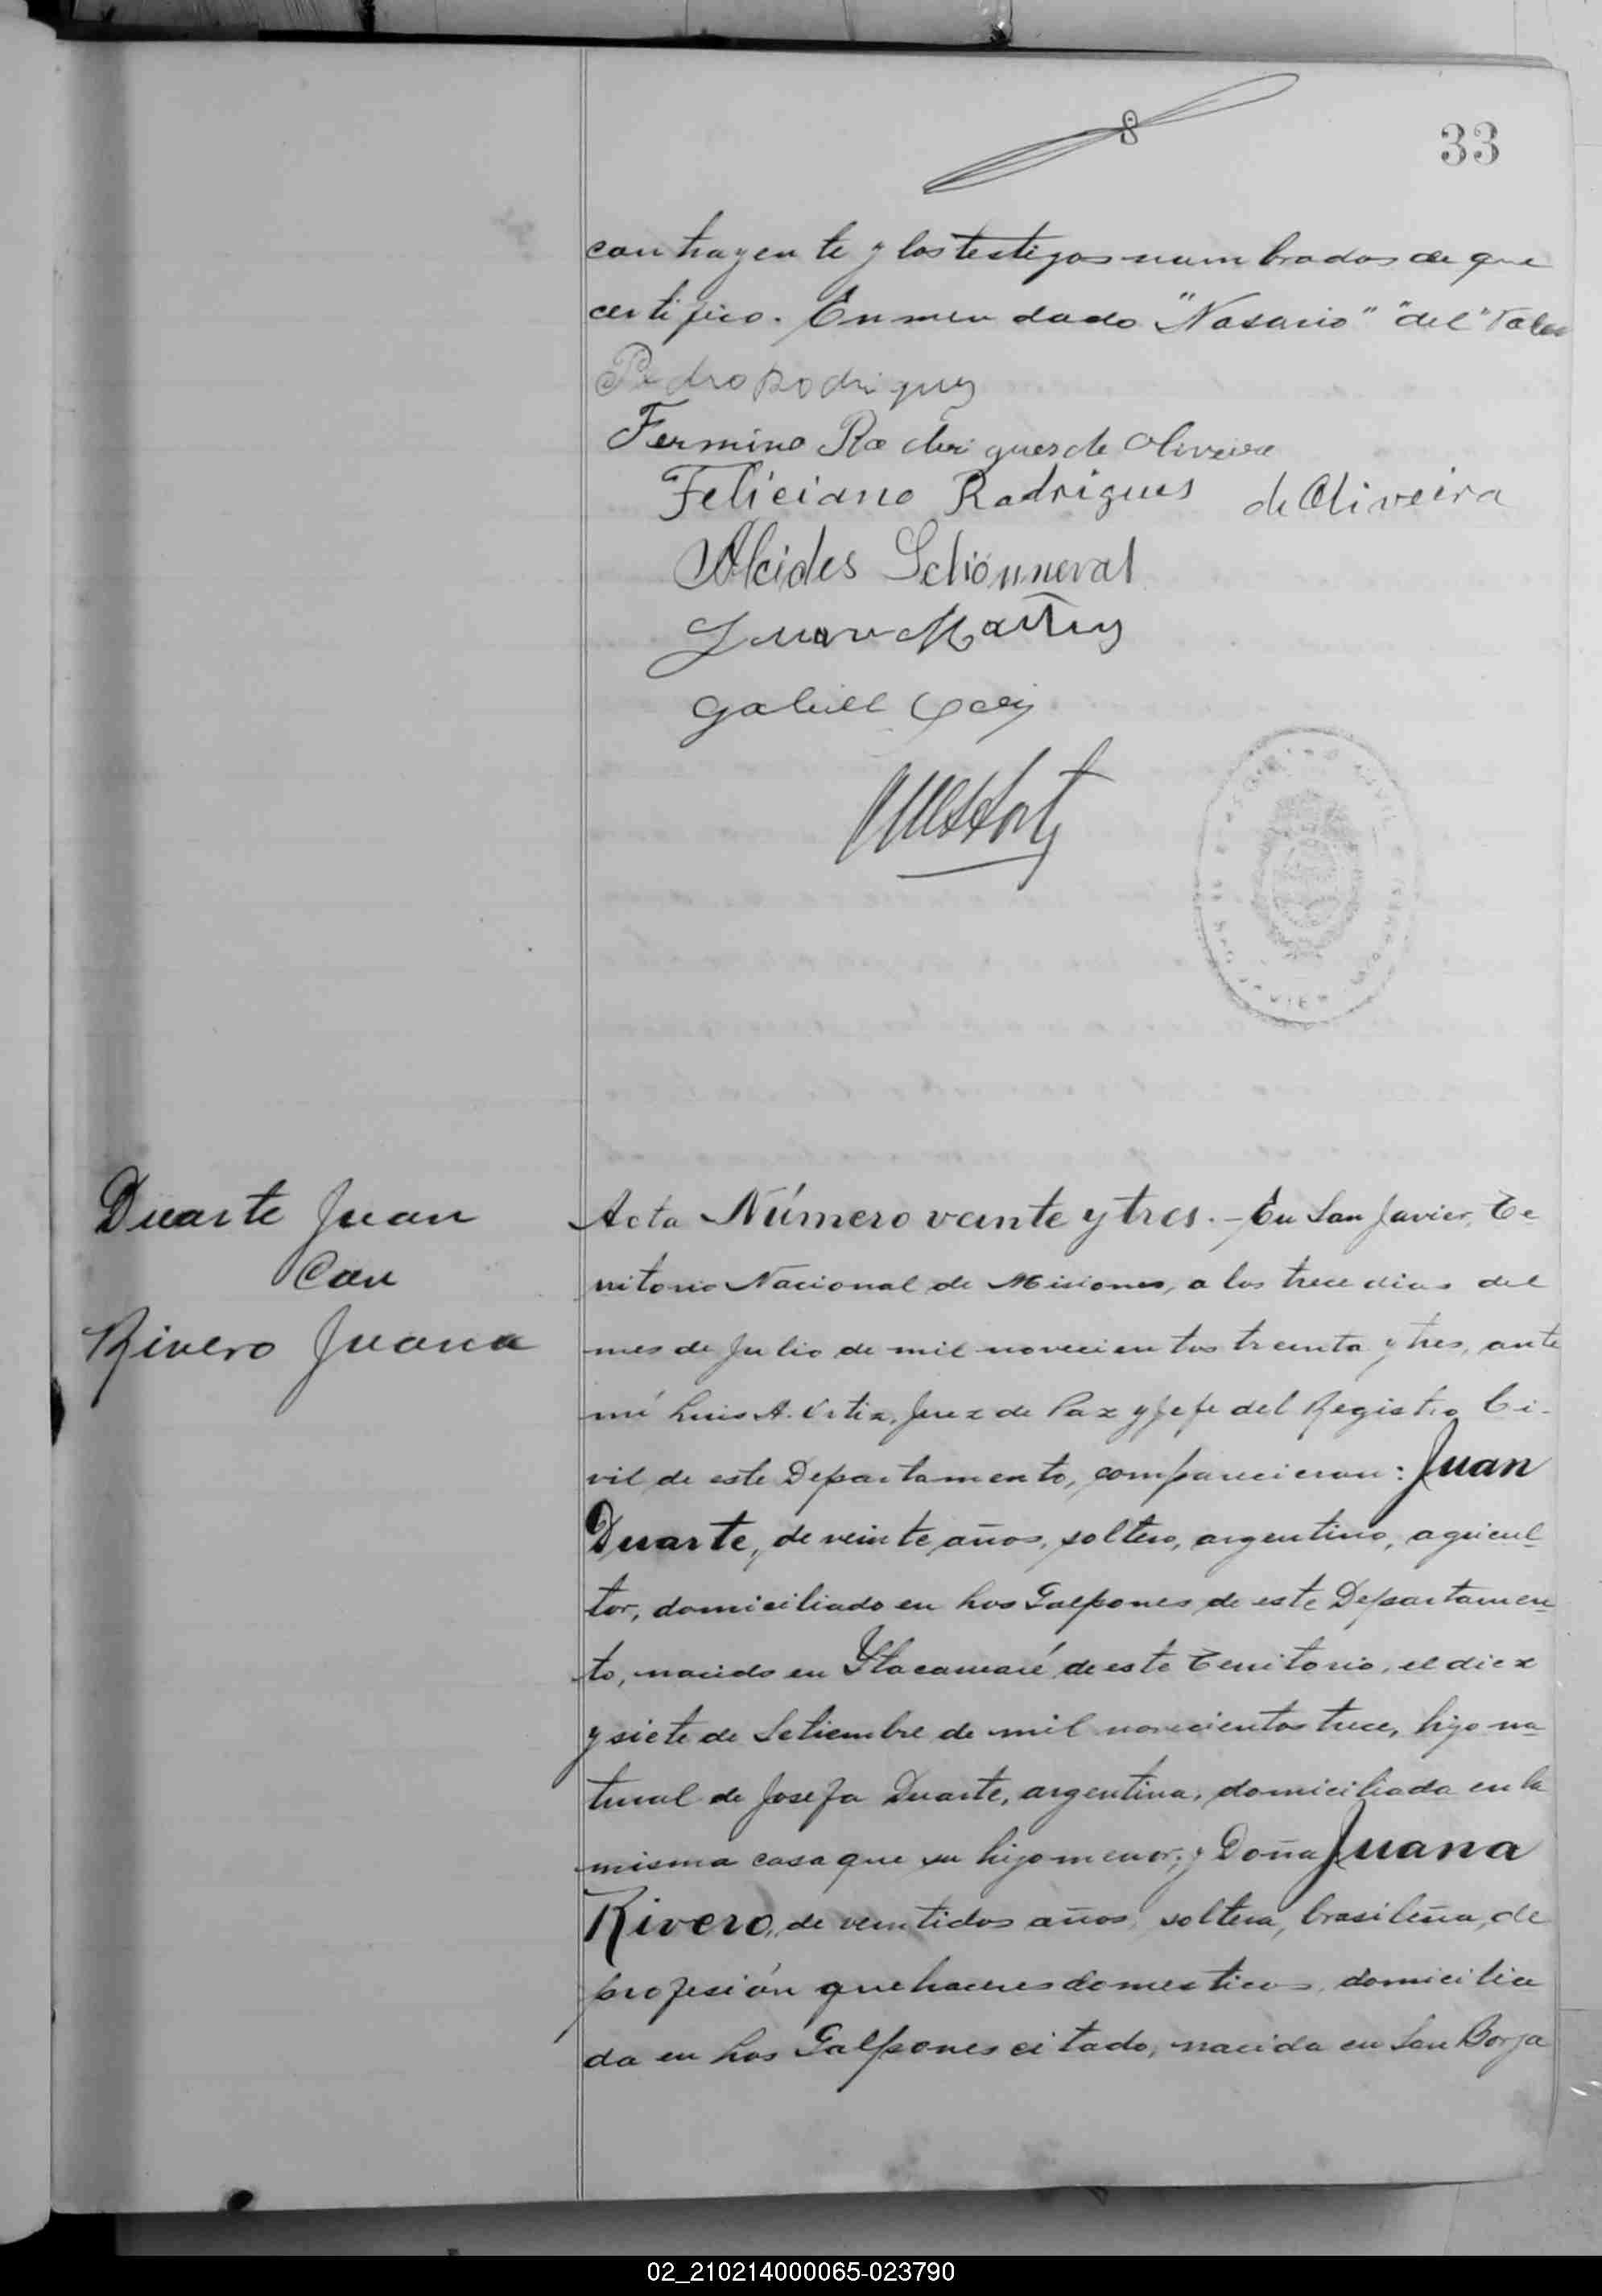 33
contrayente y los testigos nombrados de que
certifico. Enmendado "Nasario" "del" Vale
Pedro Rodriguez
Fermino Rodrigues de Oliveira
Feliciano Rodrigues de Oliveira
Alcides
Juan
Gabriel
Duarte Juan
Con
Rivero Juana
Acta Número veinte y tres. - En San Javier, Te
rritorio Nacional de Misiones, a los trece dias del
mes de Julio de mil novecientos treinta y tres, ante
mí Luis A. Ortiz, Juez de Paz y Jefe del Registro Ci-
vil de este Departamento, comparecieron: Juan
Duarte, de veinte años, soltero, argentino, agricul-
tor, domiciliado en Los Galpones de este Departamen-
to, nacido en Itacaruaré de este Territorio, el diez
y siete de Setiembre de mil novecientos trece, hijo na-
tural de Josefa Duarte, argentina, domiciliada en la
misma casa que su hijo menor; y Doña Juana
Rivero, de veintidos años, soltera, brasileña, de
profesión quehaceres domesticos, domicilia
da en Los Galpones citado, nacida en San Borja
02_210214000065-023790